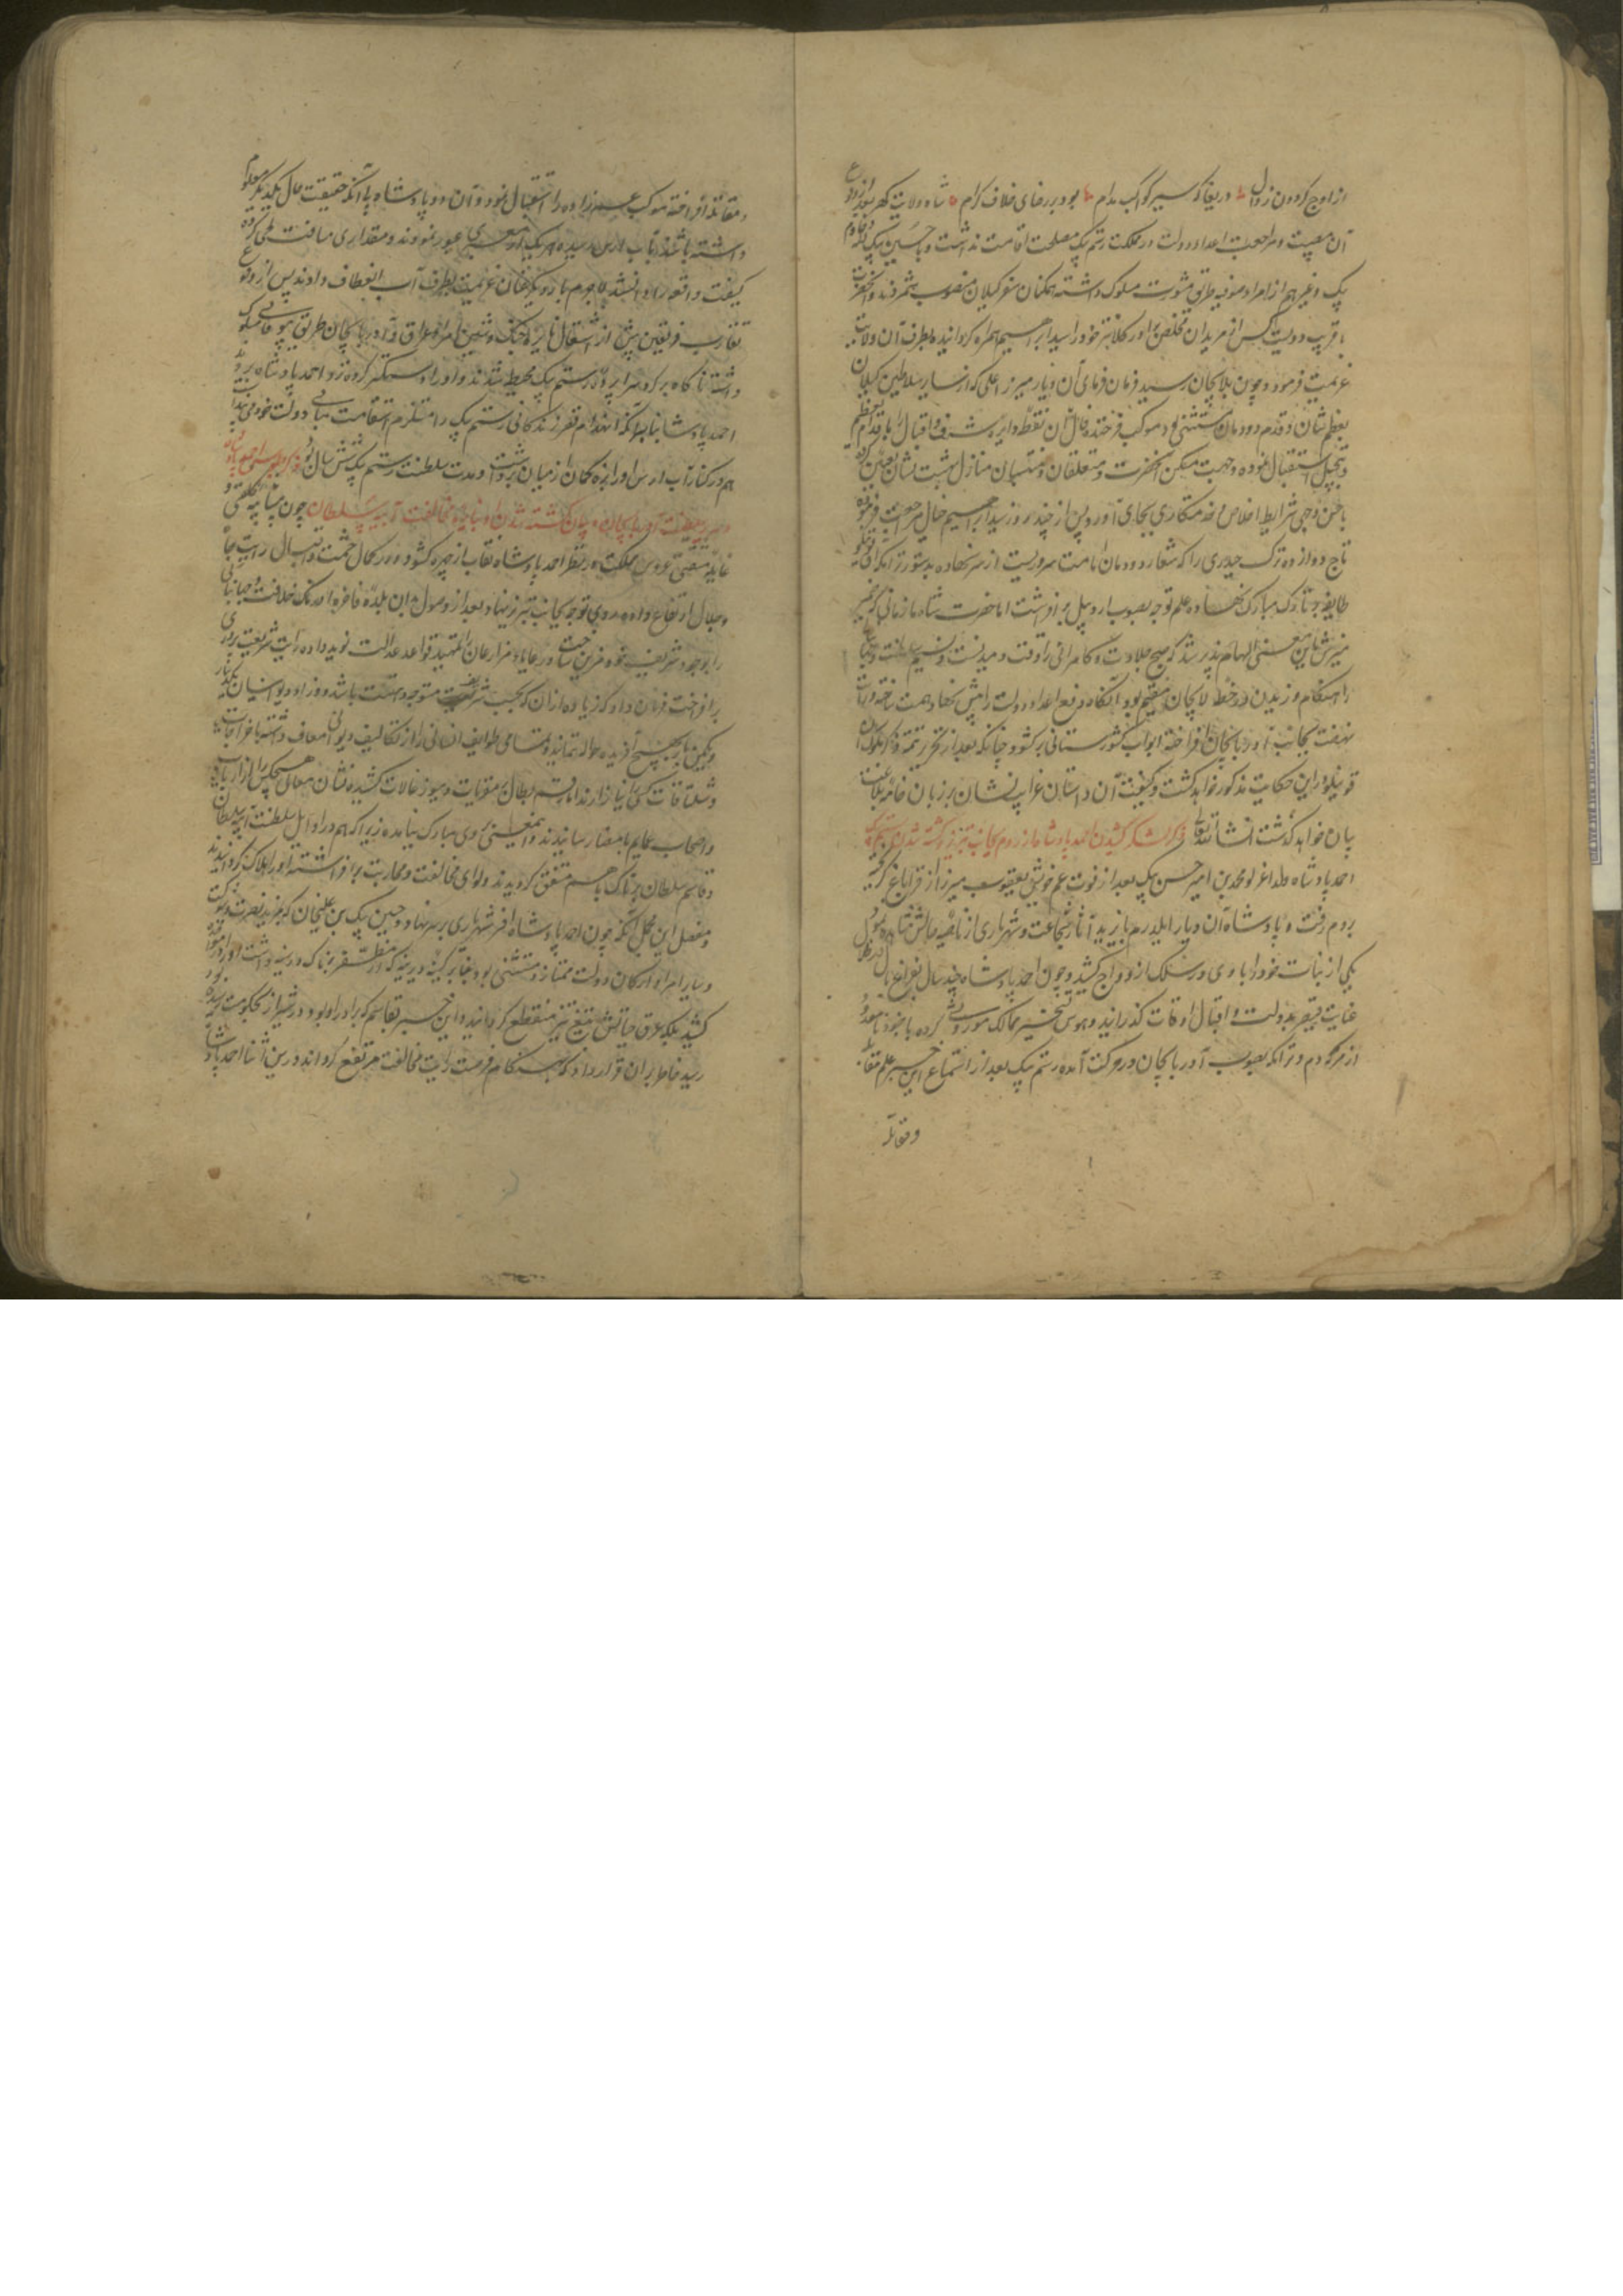 از اوج گردون زوال دریغا که سیر کواکب مدام بود بر رضای خلاف کرام شاه ولایت گهر بعد از وقوع
آن مصیبت و مراجعت اعداء دولت در مملکت رستم بیک مصلحت اقامت نداشت و با حسین بیک لله و خادم
بیک و غیرهم از امراء صوفیه طریق مشورت مسلوک داشته همگنان سفر گیلان منصوب شمردند و آنحضرت
با قرب دویست کس از مریدان مخلص برادر کلانتر خود را سید ابراهیم همراه گردانیده بطرف آن ولایت
عزیمت فرمود و چون بلاهیجان رسید فرمان فرمای آن دیار میرزا علی که از سایر سلاطین گیلان
بعظم شان و قدم دودمان مستثنی بود موکب فرخنده فال آن نقطه دایره شرف و اقبال را باقدام تعظیم
و تبجیل استقبال نموده و جهت مسکن آنحضرت و متعلقان و منتسبان منازل بهشت نشان تعیین کرد
باحسن وجهی شرایط اخلاص و خدمتکاری بجای آورد و پس از چند روز سید ابراهیم خیال مراجعت فرموده
تاج دوازده ترک حیدری را که شعار دودمان امامت بود از سر نهاده بدستور تراکمه آق قوینلو
طاقیه بر تارک مبارک نهاده علم توجه بصوب اردبیل برافراشت اما حضرت شاه تا زمانی که ضمیر
منیرش باین معنی الهام پذیر شد که صبح جلادت و کامرانی را وقت دمیدنست و نسیم سلطنت و جهانبانی
را هنگام وزیدن در خطه لاهیجان مقیم بود آنگاه دفع اعداء دولت را پیش نهاد همت ساخته رایات
نهضت بجانب آذربایجان افراخته ابواب کشورستانی برگشود چنانکه بعد از تحریر تتمه ذکر ملوک آق
قوینلو این حکایت مذکور خواهد گشت و کیفیت آن داستان غرایب نشان بر زبان خامه بلاغت
بیان خواهد گذشت انشاء الله تعالی ذکر لشکر کشیدن احمد پادشاه از روم بجانب تبریز و کشته شدن رستم بیک
احمد پادشاه ولد اغرلو محمد بن امیر حسن بیک بعد از فوت عم خویش یعقوب میرزا از قراباغ گریخته
بروم رفت و پادشاه آن دیار ایلدرم بایزید آثار شجاعت و شهریاری از ناصیه حالش مشاهده نموده
یکی از بنات خود را با وی در سلک ازدواج کشید و چون احمد پادشاه چند سال بفراغ بال در ظل
عنایت قیصر بدولت و اقبال اوقات گذرانید و هوس تسخیر ممالک موروثی کرده با جنود نامعدود
از مردم روم و تراکمه بصوب آذربایجان در حرکت آمده رستم بیک بعد از استماع این خبر علم مقابله
و مقاتله
و مقاتله افراخته موکب عمزاده را استقبال نمود و آن دو پادشاه بی آنکه حقیقت حال یکدیگر معلوم
داشته باشند بآب ارس رسیده هر یک از معبری عبور نمودند و مقداری مسافت طی کرده
کیفیت واقعه را دانستند لاجرم بار دیگر عنان عزیمت بطرف آب انعطاف دادند پس از وقوع
تقارب فریقین پیش از اشتعال نایره جنگ و شین امراء عراق و آذربایجان طریق بیوفایی مسلوک
داشته ناگاه بر گرد سراپرده رستم بیک محیط شدند و او را دستگیر کرده نزد احمد پادشاه بردند
احمد پادشاه بنابر آنکه انهدام قصر زندگانی رستم بیک را مستلزم استقامت مبانی دولت خود می پنداشت
هم در کنار آب ارس او را بزه کمان از میان برداشت و مدت سلطنت رستم بیک شش سال بود ذکر جلوس احمد پادشاه
بر سریر سلطنت آذربایجان و بیان کشته شدن او بنابر مخالفت آیبه سلطان چون
غایله منغص عروس مملکت در نظر احمد پادشاه نقاب از چهره گشود و در کمال حشمت و اقبال رایت جاه
و جلال ارتفاع داده روی توجه بجانب تبریز نهاد و بعد از وصول بدان بلده فاخره اورنگ خلافت و جهانبانی
را بوجود شریف خود مزین ساخت و رعایا و مزارعان را بتمهید قواعد عدالت نوید داده رایت شریعت پروری
برافراخت فرمان داد که زیاده از آن که بحسب شریعت متوجه رعیت باشد وزراء و دیوانیان یک دینار
و یکمن بار بهیچ آفریده حواله ننمایند و تمامی طوایف انسانی را از تکالیف دیوانی معاف داشته باخراجات
و شلتاقات
و اصحاب عمایم بامضا رسانیدند و این معنی بر وی مبارک نیامده زیرا که هم در اوایل سلطنت آیبه سلطان
و قاسم سلطان پرناک با هم متفق گردیدند و لوای مخالفت و محاربت برافراشته او را هلاک گردانیدند
و مفصل این مجمل آنکه چون احمد پادشاه افسر شهریاری بر سر نهاد و حسین بیک بن علیخان که بمزید نصرت و شوکت
و سایر امراء و ارکان دولت ممتاز و مستثنی بود بنابر کینه دیرینه که از مظفر پرناک در سینه داشت او را
کشید بلکه عرق حیاتش بتیغ تیز منقطع گردانید و این خبر بقاسم که برادر او بود و در شیراز بحکومت
رسید خاطر بر آن قرار داد که بهنگام فرصت رایت مخالفت مرتفع گرداند و در این اثنا احمد پادشاه